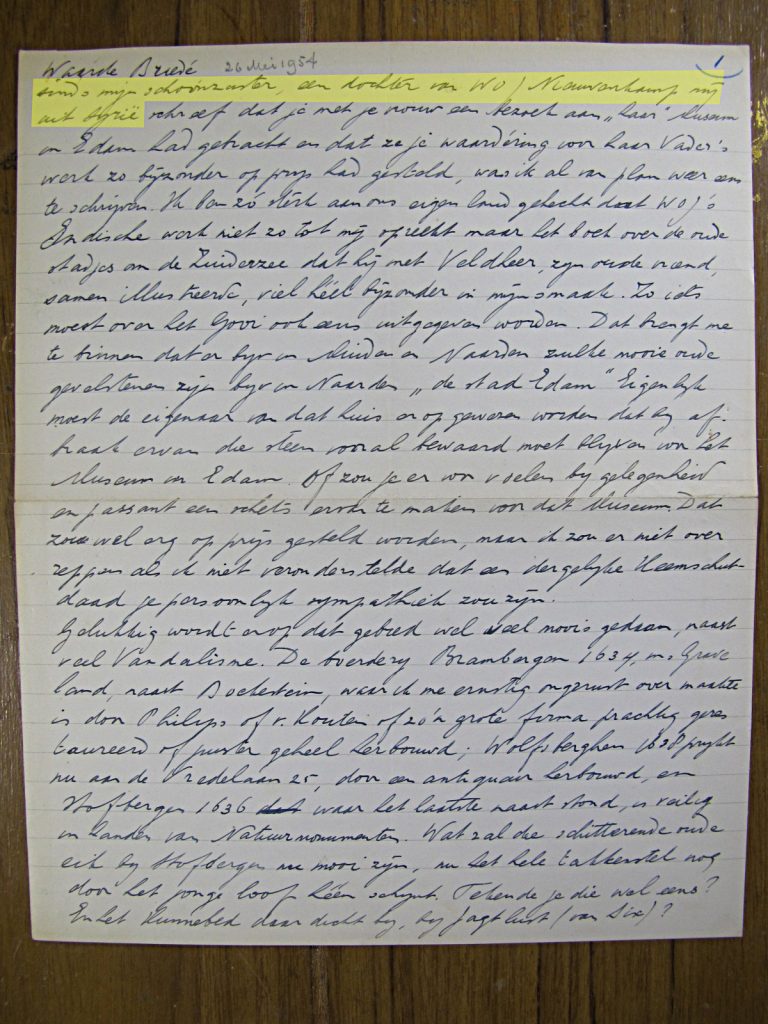 Waarde Briedé 26 Mei 1954 1
sinds mijn schoonzuster, een dochter van WOJ Nieuwenkamp mij
uit Syrië schreef dat je met je vrouw een bezoek aan „haar" Museum
in Edam had gebracht en dat ze je waardéring voor haar Vader's
werk zo bijzonder op prijs had gesteld, was ik al van plan weer eens
te schrijven. Ik ben zó stérk aan ons eigen land gehecht dat WOJ's
Indische werk niet zo tot mij spreekt maar het boek over de oude
stadjes om de Zuiderzee dat hij met Veldheer, zijn oude vriend,
samen illustreerde, viel héél bijzonder in mijn smaak. Zo iets
moest over het Gooi ook eens uitgegeven worden. Dat brengt me
te binnen dat er bijv in Muiden en Naarden zulke mooie oude
gevelstenen zijn bijv in Naarden „de stad Edam" Eigenlijk
moest de eigenaar van dat huis er op gewezen worden dat bij af-
braak ervan die steen vooral bewaard moet blijven voor het
Museum in Edam. Of zou je er voor voelen bij gelegenheid
en passant een schets ervan te maken voor dat Museum. Dat
zou wel erg op prijs gesteld worden, maar ik zou er niet over
reppen als ik niet veronderstelde dat een dergelijke Heemschut-
daad je persoonlijk sympathiek zou zijn.
Gelukkig wordt er op dat gebied wel veel moois gedaan, naast
veel Vandalisme. De boerderij Brambergen 1634, in 's Grave
land, naast Boekestein, waar ik me ernstig ongerust over maakte
is door Philips of v. Houten of zo'n grote firma prachtig geres
taureerd of juister geheel herbouwd; Wolfsberghen 1638 prijkt
nu aan de Vredelaan 25, door een antiquair herbouwd, en
Stofbergen 1636 waar het laatste naast stond, is veilig
in handen van Natuurmonumenten. Wat zal die schitterende oude
eik bij Stofbergen nu mooi zijn, nu het hele takkenstel nog
door het jonge loof héén schijnt. Tekende je die wel eens?
En het Hunnebed daar dicht bij, bij Jagtlust (van Six)?